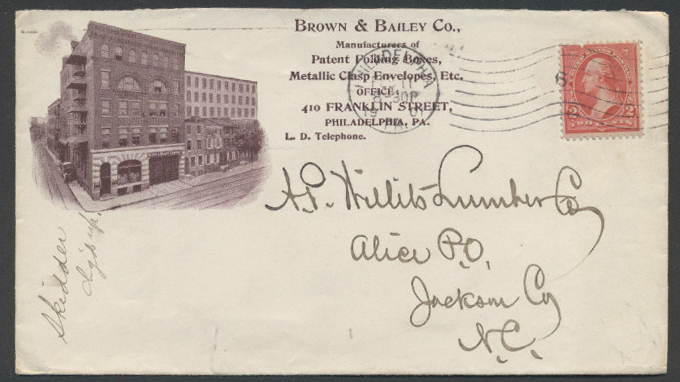 BROWN & BAILEY CO.,
Manufacturers of
Patent Folding Boxes,
Metallic Clasp Envelopes, Etc.
OFFICE:
410 FRANKLIN STREET,
PHILADELPHIA, PA.
L. D. Telephone.
PHILADELPHIA
PA.
2 2
TWO CENTS
A. P. Willits Lumber Co
Alice P.O.
Jackson Co
N.C.
Skidder